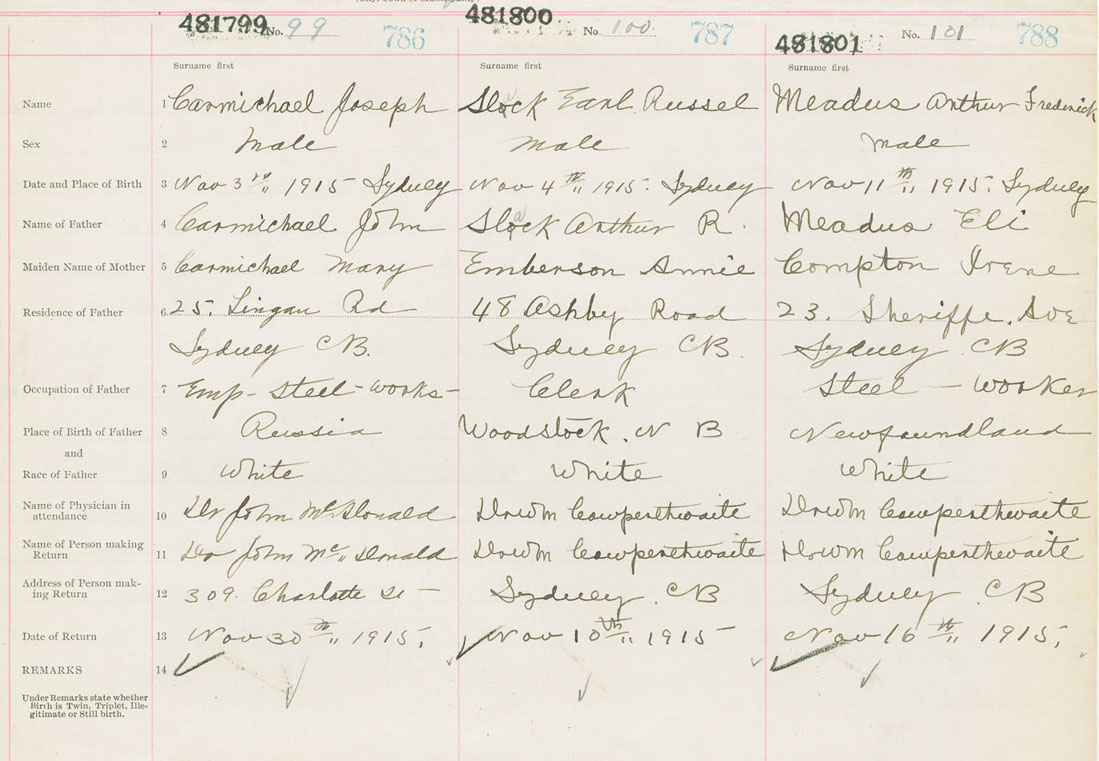 481799 No. 99 786
481800 No. 100. 787
481801 No. 101 788
Surname first Surname first Surname first
Name 1 Carmichael Joseph Slock Earl Russel Meadus Arthur Frederick
Sex 2 Male Male Male
Date and Place of Birth 3 Nov 3rd 1915 Sydney Nov 4th 1915. Sydney Nov 11th 1915. Sydney
Name of Father 4 Carmichael John Slock Arthur R. Meadus Eli
Maiden Name of Mother 5 Carmichael Mary Emberson Annie Compton Irene
Residence of Father 6 25. Lingan Rd 48 Ashby Road 23. Sheriffe. Ave
Sydney CB. Sydney CB. Sydney CB
Occupation of Father 7 Emp- Steel-works- Clerk Steel - worker
Place of Birth of Father 8 Russia Woodstock. N B Newfoundland
and
Race of Father 9 White White White
Name of Physician in
attendance 10 Dr John McDonald Dr Wm Cowperthwaite Dr Wm Cowperthwaite
Name of Person making
Return 11 Dr John Mc Donald Dr Wm Cowperthwaite Dr Wm Cowperthwaite
Address of Person mak-
ing Return 12 309. Charlotte St - Sydney. CB Sydney. CB
Date of Return 13 Nov 30th 1915. Nov 10th 1915 Nov 16th 1915.
REMARKS 14
Under Remarks state whether
Birth is Twin, Triplet, Ille-
gitimate or Still birth.